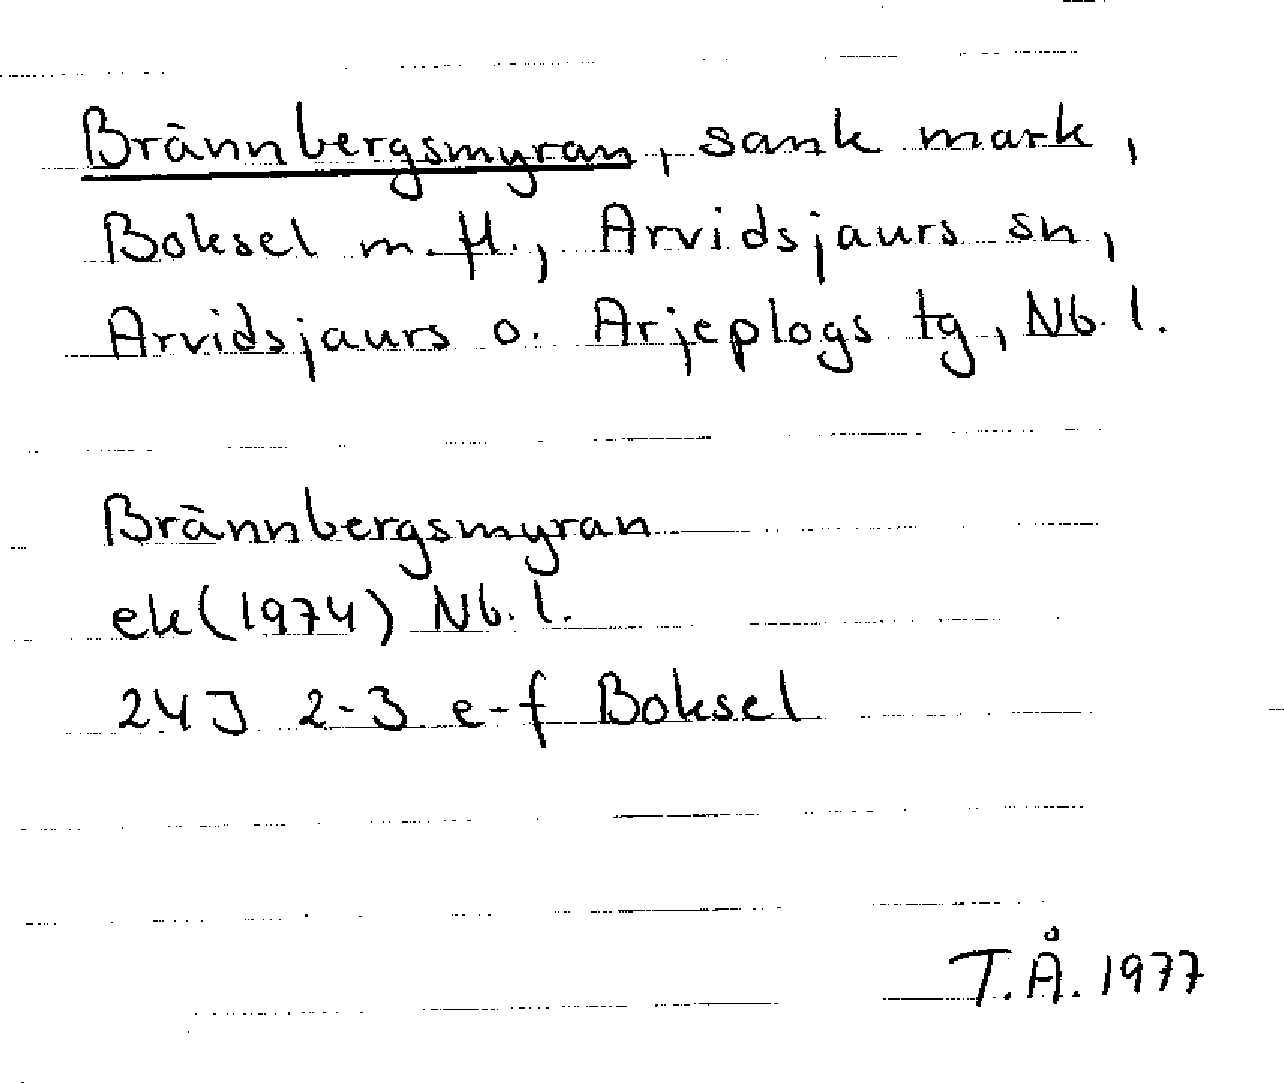 Brännbergsmyran, sank mark,
Boksel m.fl., Arvidsjaurs sn,
Arvidsjaurs o. Arjeplogs tg, Nb. l.
Brännbergsmyran
ek (1974) Nb. l.
24J 2-3 e-f Boksel
T.Å. 1977